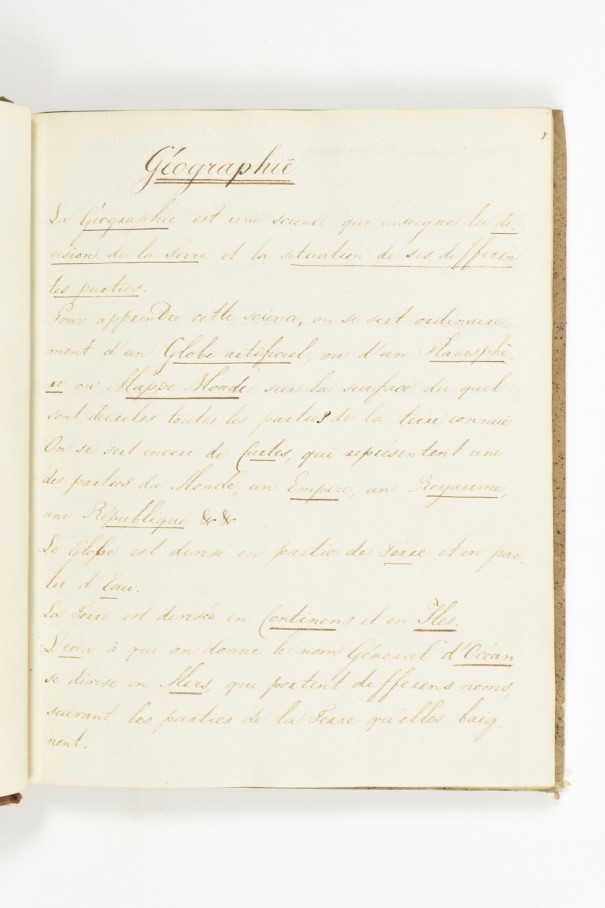 1
Géographië
La Géographie est une science qui enseigne la di-
vision de la Terre et la situation de ses differen
tes parties.
Pour apprendre cette science, on se sert ordinaire-
ment d'un Globe artificiel, ou d'un Planisphè-
re ou Mappe Monde sur la surface du quel
sont decrites toutes les parties de la terre connue
On se sert encore de Cartes, que représentent une
des parties du Monde, un Empire, un Royaume,
une République && 
Le Globe est divisé en partie de Terre et en par-
tie d'Eau.
La Terre est divisée en Continens et en Iles.
L'eau à que on donne le nom Général d'Océan
se divise en Mers, que portent differens noms,
suivant les parties de la Terre qu'elles baig
nent.